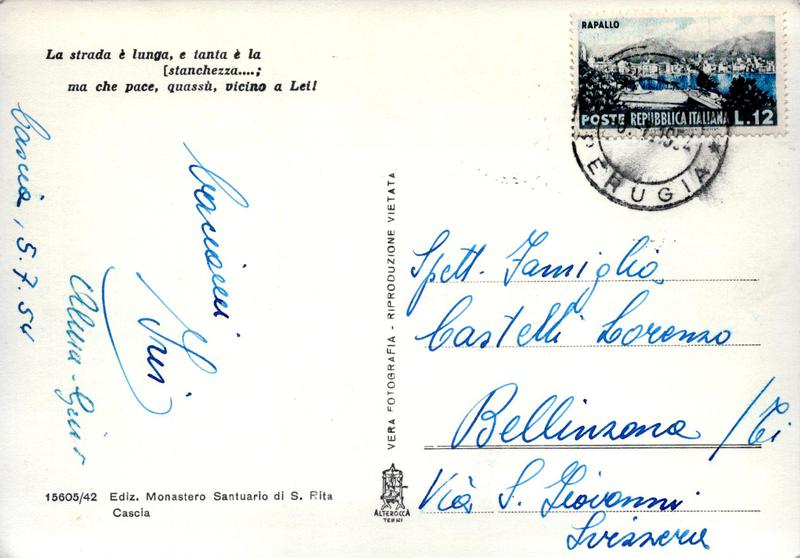 La strada è lunga, e tanta è la
[stanchezza....;
ma che pace, quassù, vicino a Lei!
Cascia, 5.7.54
Bacioni
Iris
15605/42 Ediz. Monastero Santuario di S. Rita
Cascia
VERA FOTOGRAFIA - RIPRODUZIONE VIETATA
ALTEROCCA
TERNI
RAPALLO
POSTE REPUBBLICA ITALIANA L.12
PERUGIA
Spett. Famiglia
Castelli Lorenzo
Bellinzona / Ti
Via S. Giovanni
Svizzera